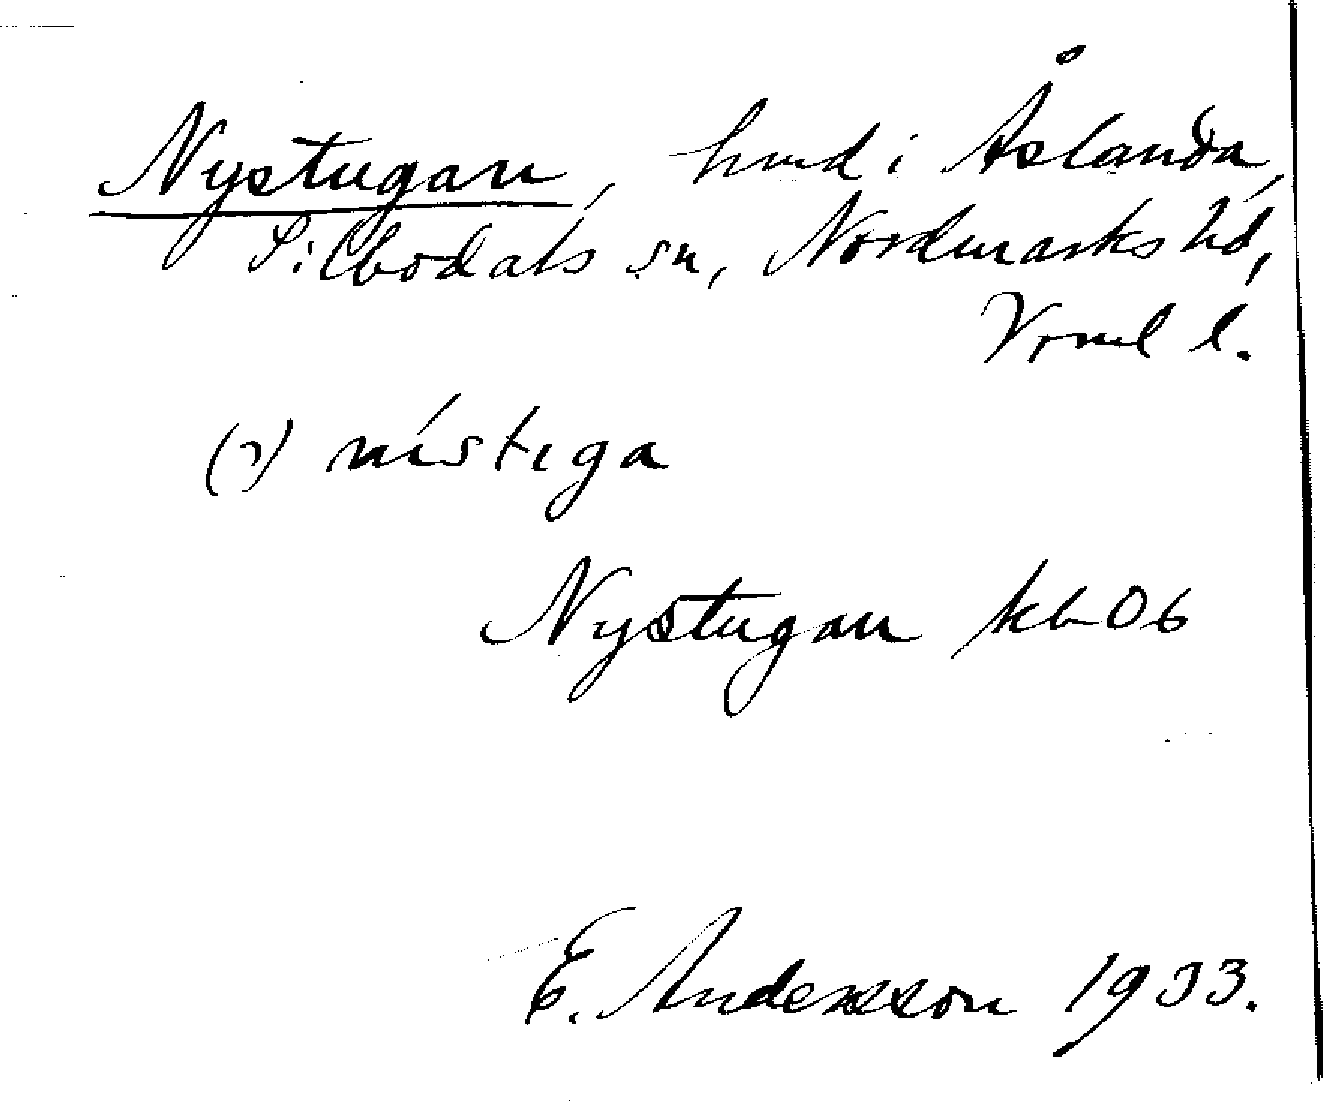 Nystugan, hmd i Åslanda,
Silbodals sn, Nordmarks hd,
Vrml l.
(ɔ) nístiga
Nystugan kb 06
E. Andersson 1933.